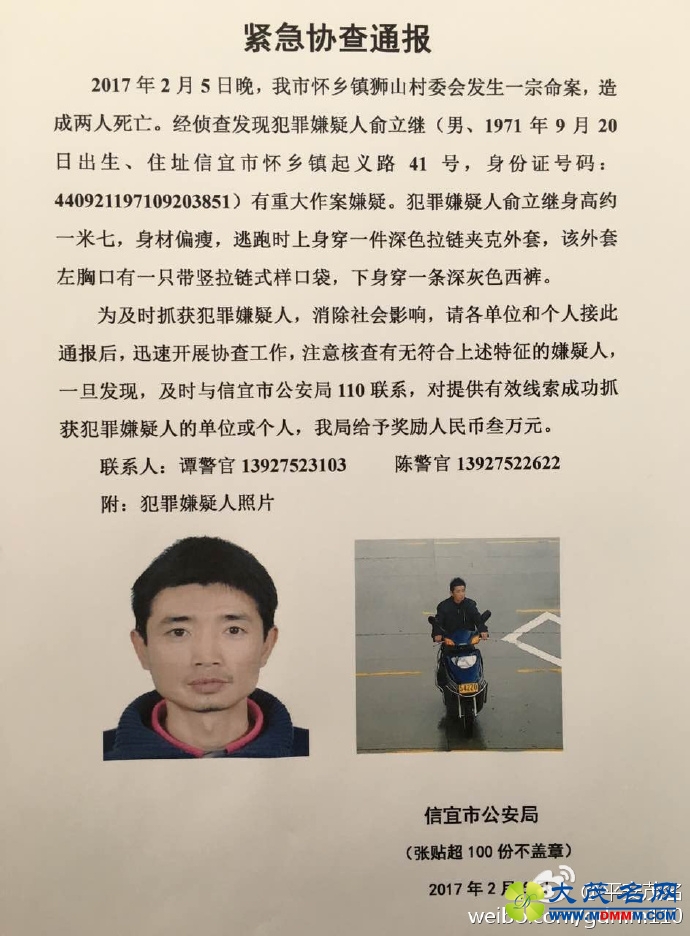 紧急协查通报
2017 年 2 月 5 日晚，我市怀乡镇狮山村委会发生一宗命案，造
成两人死亡。经侦查发现犯罪嫌疑人俞立继（男、1971 年 9 月 20
日出生、住址信宜市怀乡镇起义路 41 号，身份证号码：
440921197109203851）有重大作案嫌疑。犯罪嫌疑人俞立继身高约
一米七，身材偏瘦，逃跑时上身穿一件深色拉链夹克外套，该外套
左胸口有一只带竖拉链式样口袋，下身穿一条深灰色西裤。
为及时抓获犯罪嫌疑人，消除社会影响，请各单位和个人接此
通报后，迅速开展协查工作，注意核查有无符合上述特征的嫌疑人，
一旦发现，及时与信宜市公安局 110 联系，对提供有效线索成功抓
获犯罪嫌疑人的单位或个人，我局给予奖励人民币叁万元。
联系人：谭警官 13927523103 陈警官 13927522622
附：犯罪嫌疑人照片
信宜市公安局
（张贴超 100 份不盖章）
2017 年 2 月
大茂名网
www.MDMMM.com